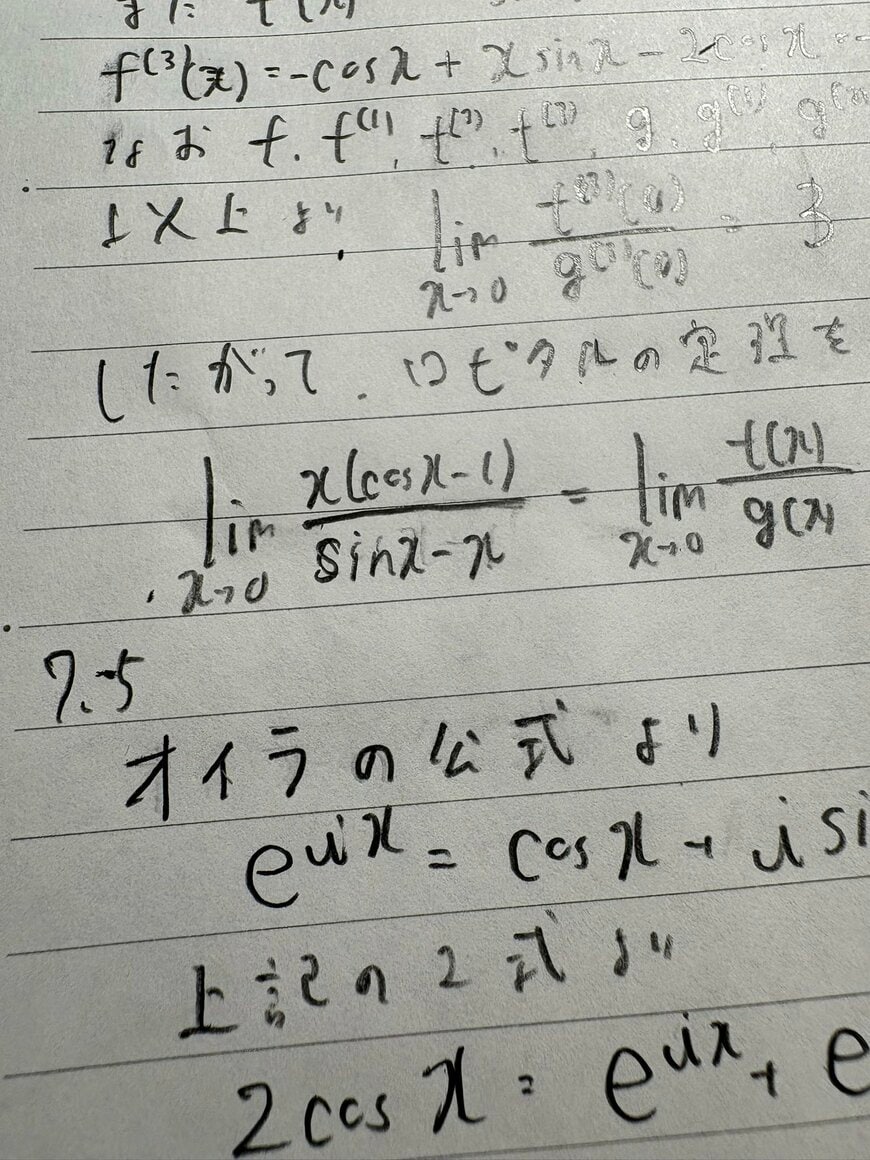 また f(x)
f^(3)(x) = -cosx + x sinx - 2cosx
なお f, f^(1), f^(2), f^(3), g, g^(1), g^(2)
以上より lim x→0 f^(3)(0) / g^(3)(0) = 3
したがって、ロピタルの定理を
lim x→0 x(cosx-1) / sinx-x = lim x→0 f(x) / g(x)
7.5
オイラの公式より
e^ix = cosx + i si
上記の2式より
2cosx = e^ix + e